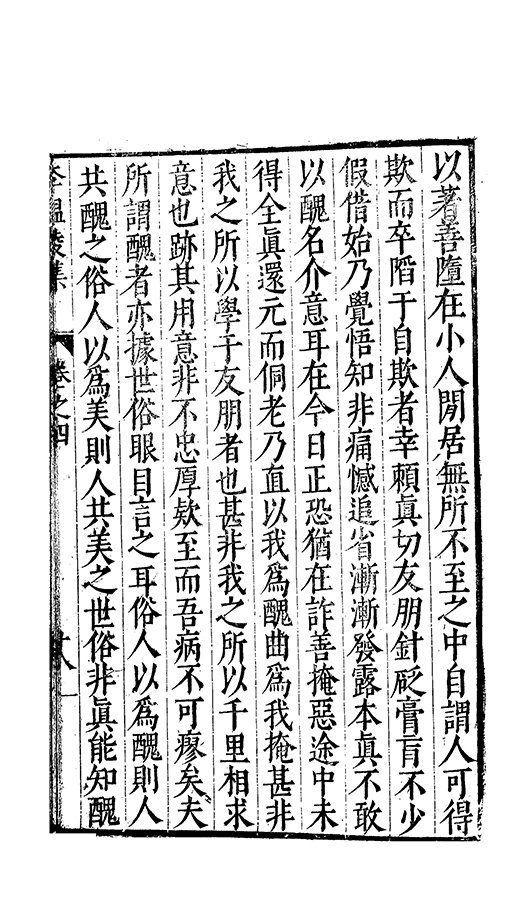 以著善墮在小人閒居無所不至之中自謂人可得
欺而卒陷于自欺者幸賴眞切友朋針砭膏肓不少
假借始乃覺悟知非痛憾追省漸漸發露本眞不敢
以醜名介意耳在今日正恐猶在詐善掩惡途中未
得全眞還元而侗老乃直以我爲醜曲爲我掩甚非
我之所以學于友朋者也甚非我之所以千里相求
意也跡其用意非不忠厚欵至而吾病不可瘳矣夫
所謂醜者亦據世俗眼目言之耳俗人以爲醜則人
共醜之俗人以爲美則人共美之世俗非眞能知醜
李溫陵集
卷之四
十八